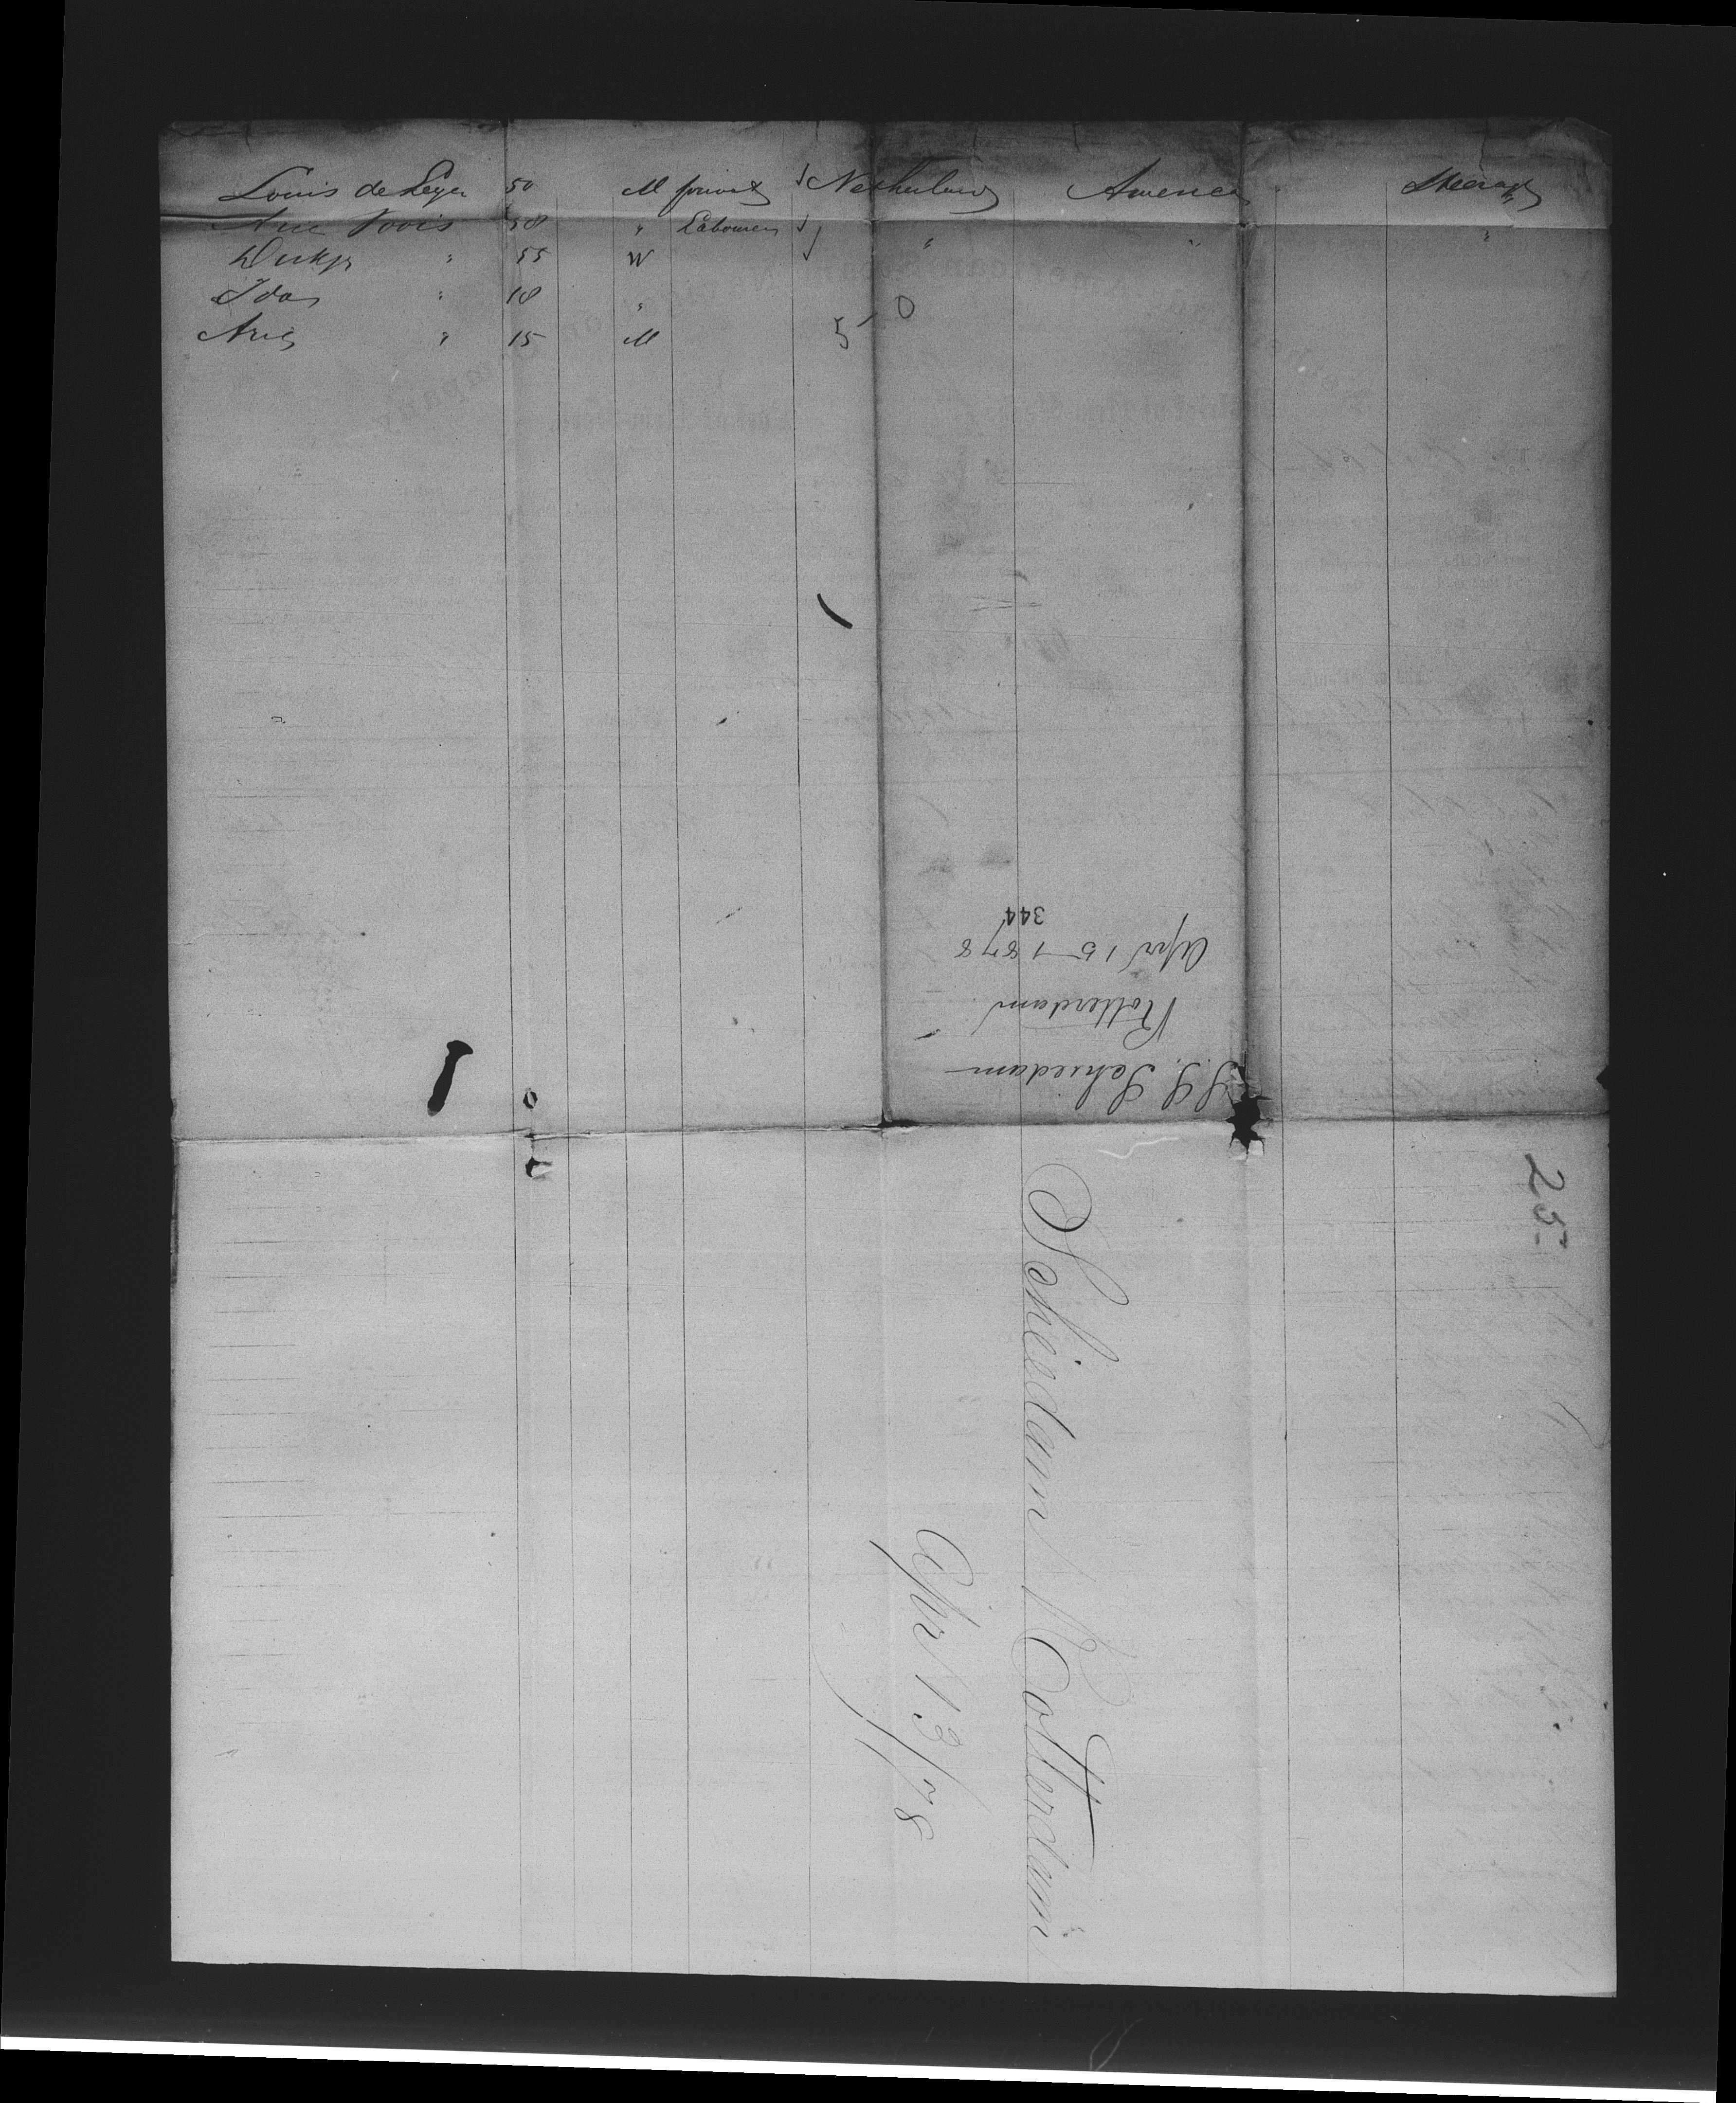 Louis de Leger 50 M privat Netherland America Steerage
Arie Poois 58 " Labourer " " "
Dirkje " 55 W
Ida " 18 "
Arie " 15 M 5 0
S.S. Schiedam
Rotterdam
Apr 15 1878
344
25
Scheindam Rotterdam
Apr 13/78